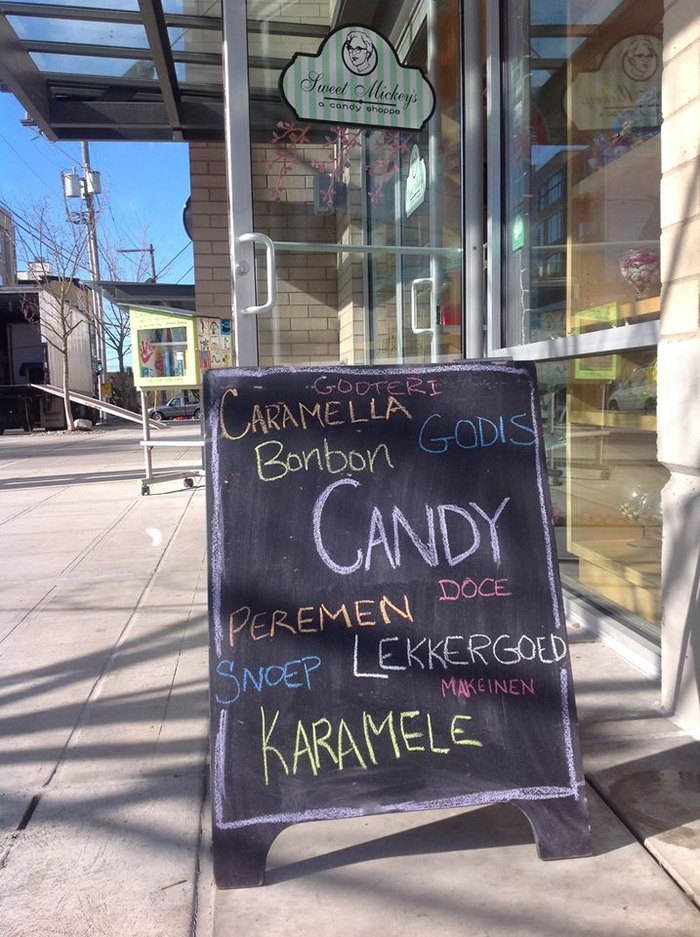 Sweet Mickey's
a candy shoppe
GODTERI
CARAMELLA
GODIS
Bonbon
CANDY
DOCE
PEREMEN
LEKKERGOED
SNOEP
MAKEINEN
KARAMELE